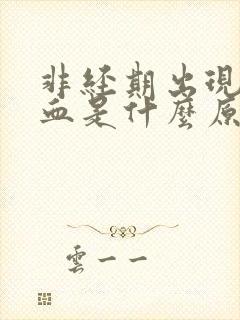 非經期出現
血是什麼原
雲一一